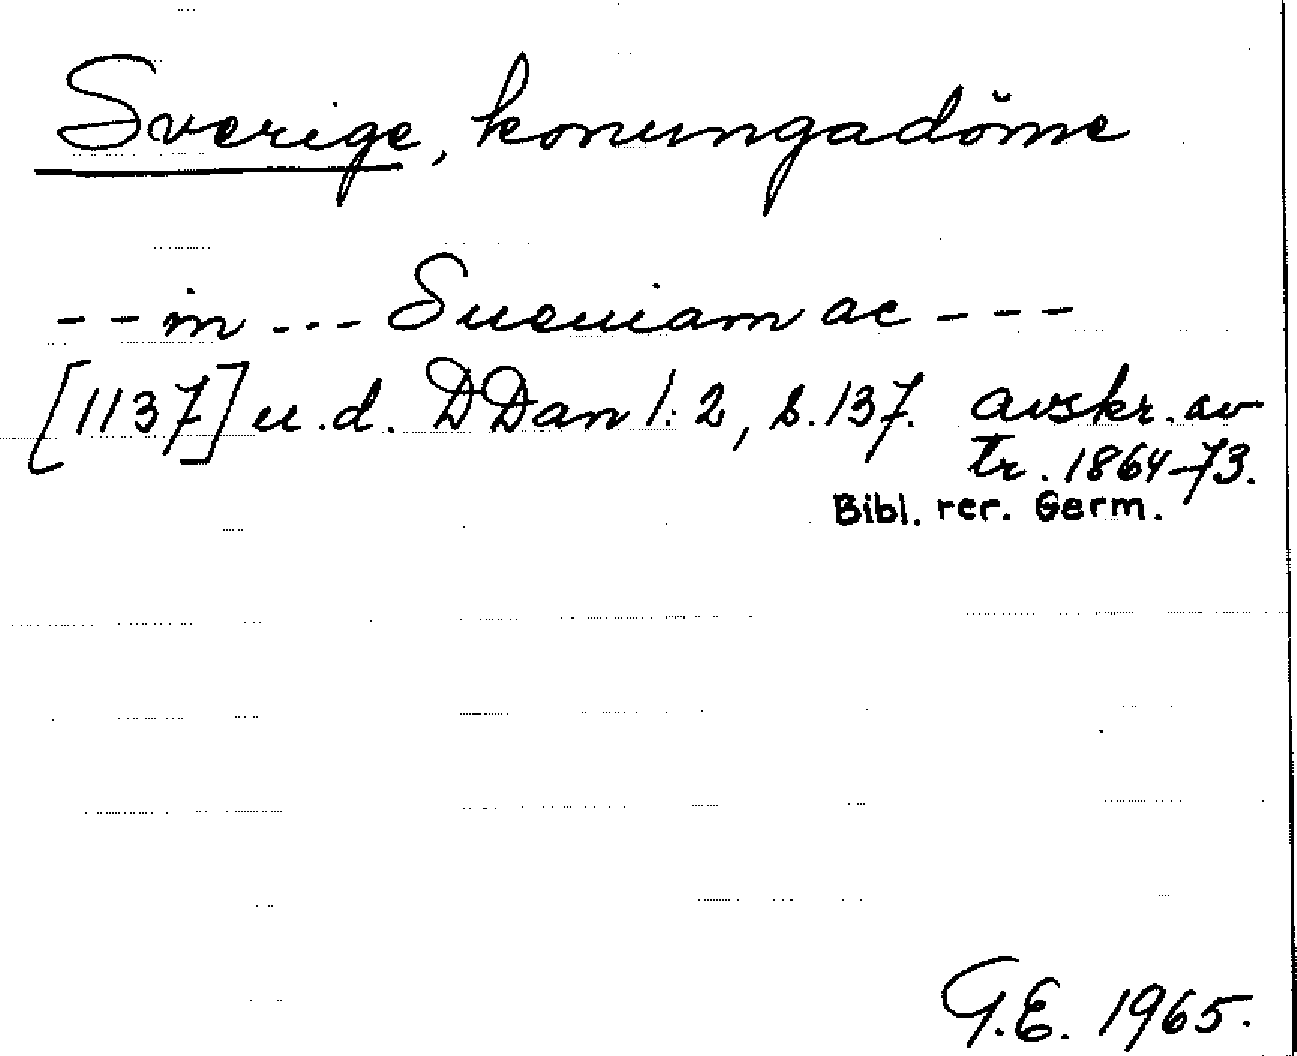 Sverige, konungadöme
-- in --- Sueuiam ac ---
[1137] u.d. DDan 1:2, s. 137. avskr. av
tr. 1864-73.
Bibl. rer. Germ.
G.E. 1965.